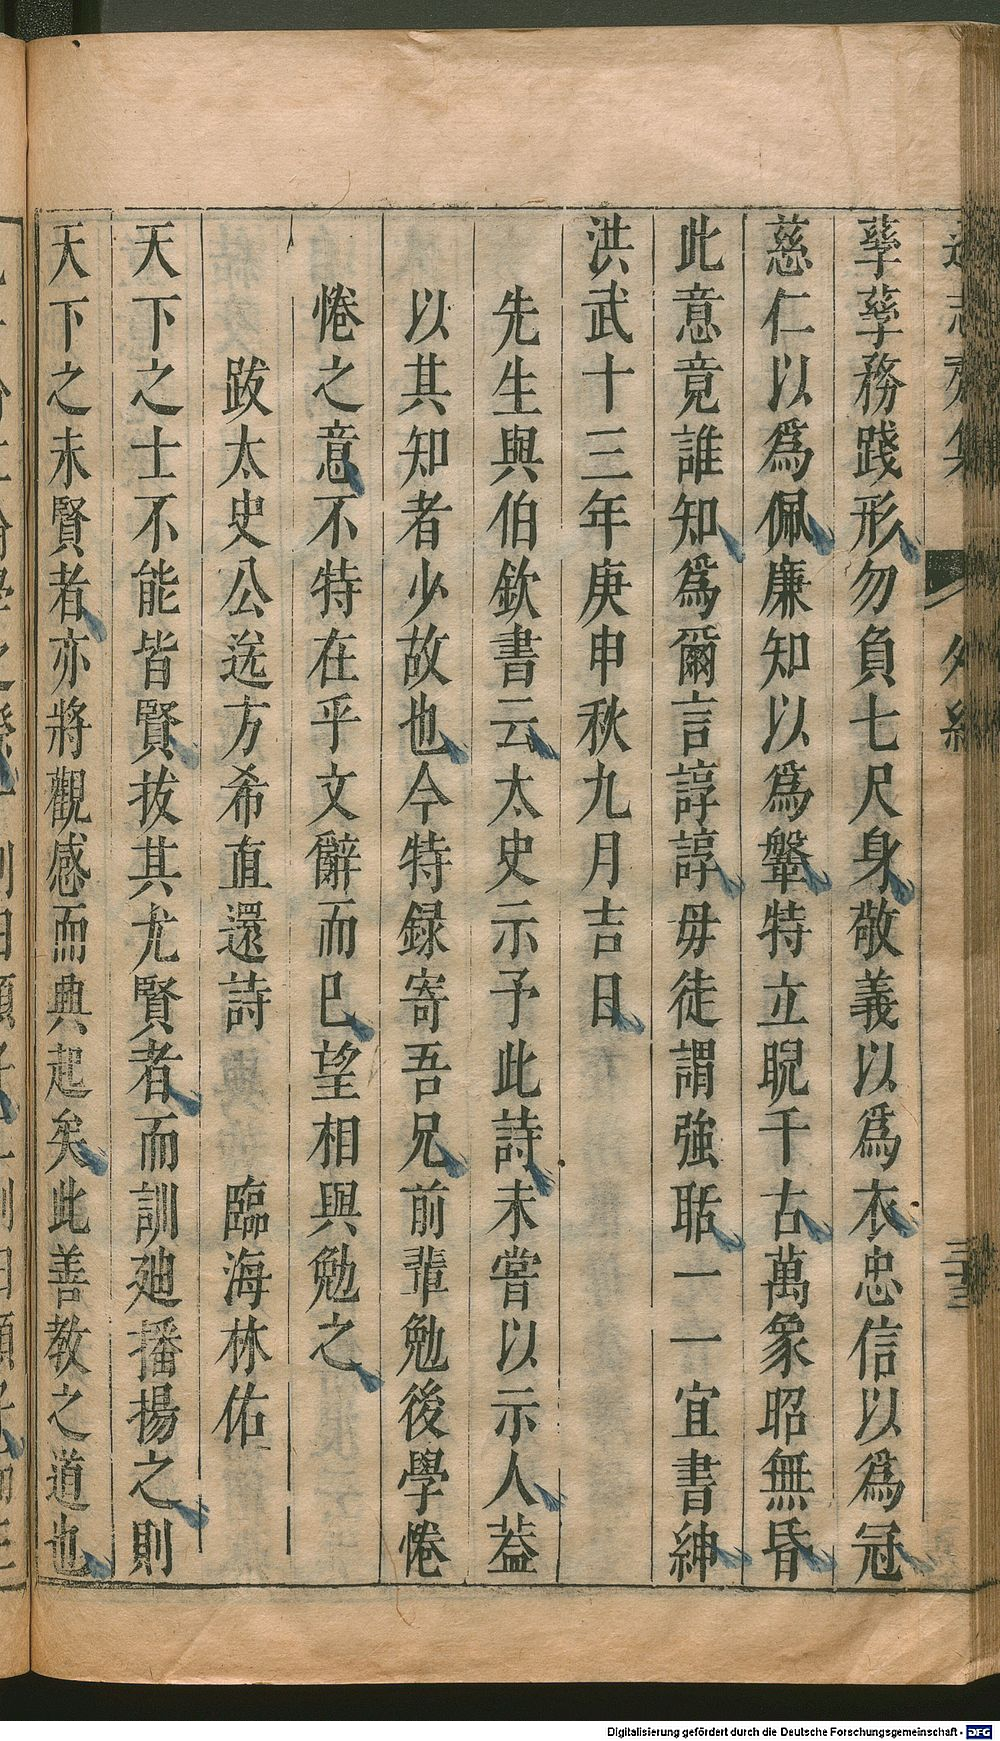 孳孳務踐形勿負七尺身敬義以爲衣忠信以爲冠
慈仁以爲佩廉知以爲鞶特立睨千古萬象昭無昏
此意竟誰知爲爾言諄諄毋徒謂強聒一一宜書紳
洪武十三年庚申秋九月吉日
先生與伯欽書云太史示予此詩未嘗以示人葢
以其知者少故也今特録寄吾兄前輩勉後學惓
惓之意不特在乎文辭而已望相與勉之
跋太史公送方希直還詩 臨海林佑
天下之士不能皆賢拔其尤賢者而訓廸播揚之則
天下之未賢者亦將觀感而典起矣此善教之道也
Digitalisierung gefördert durch die Deutsche Forschungsgemeinschaft - DFG